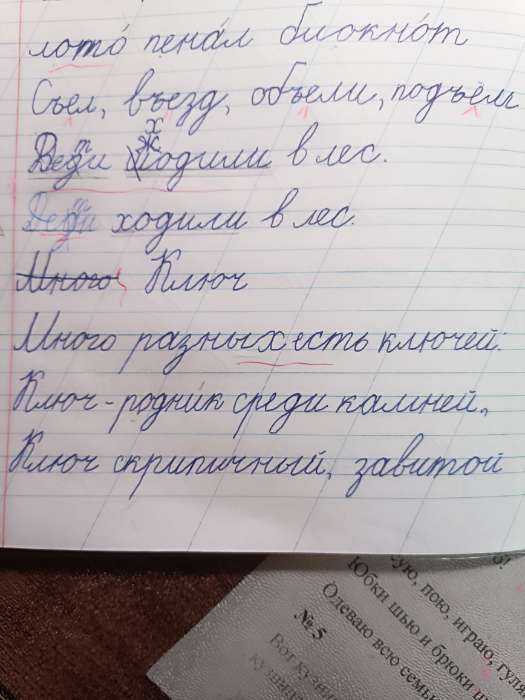 лото́ пена́л блокно́т
Съел, въезд, объели, подъём
Дети ходили в лес.
Дети ходили в лес.
Много Ключ
Много разных есть ключей:
Ключ - родник среди камней,
Ключ скрипичный, завитой
ую, пою, играю, гуля
Юбки шью и брюки ш
Одеваю всю семь
№ 5
Вот кузни